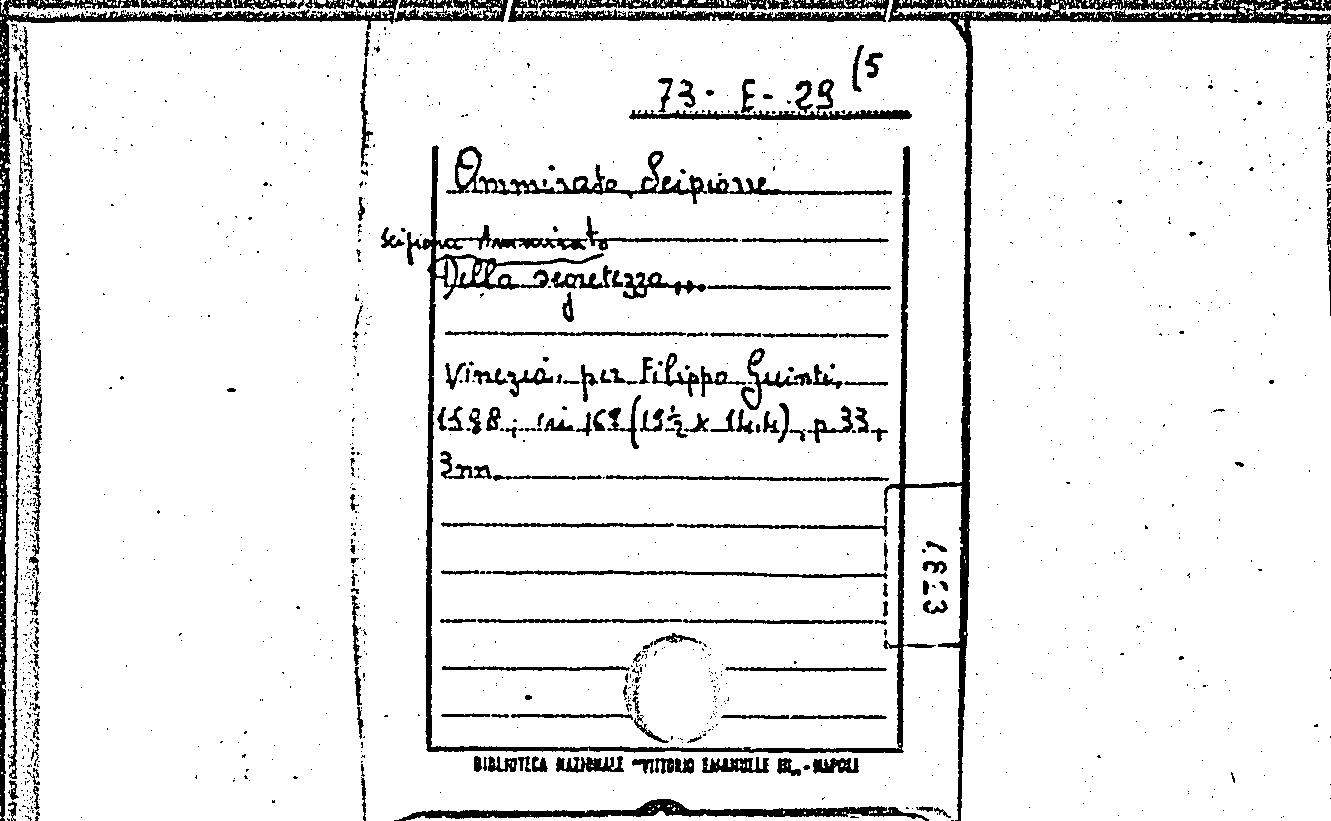 73 - E - 29 (5
Ammirato Scipione
Scipione Ammirato
Della segretezza...
Vinezia, per Filippo Giunti,
1598, in 16º (19½ x 14.4), p. 33,
3 nn.
BIBLIOTECA NAZIONALE "VITTORIO EMANUELE III" - NAPOLI